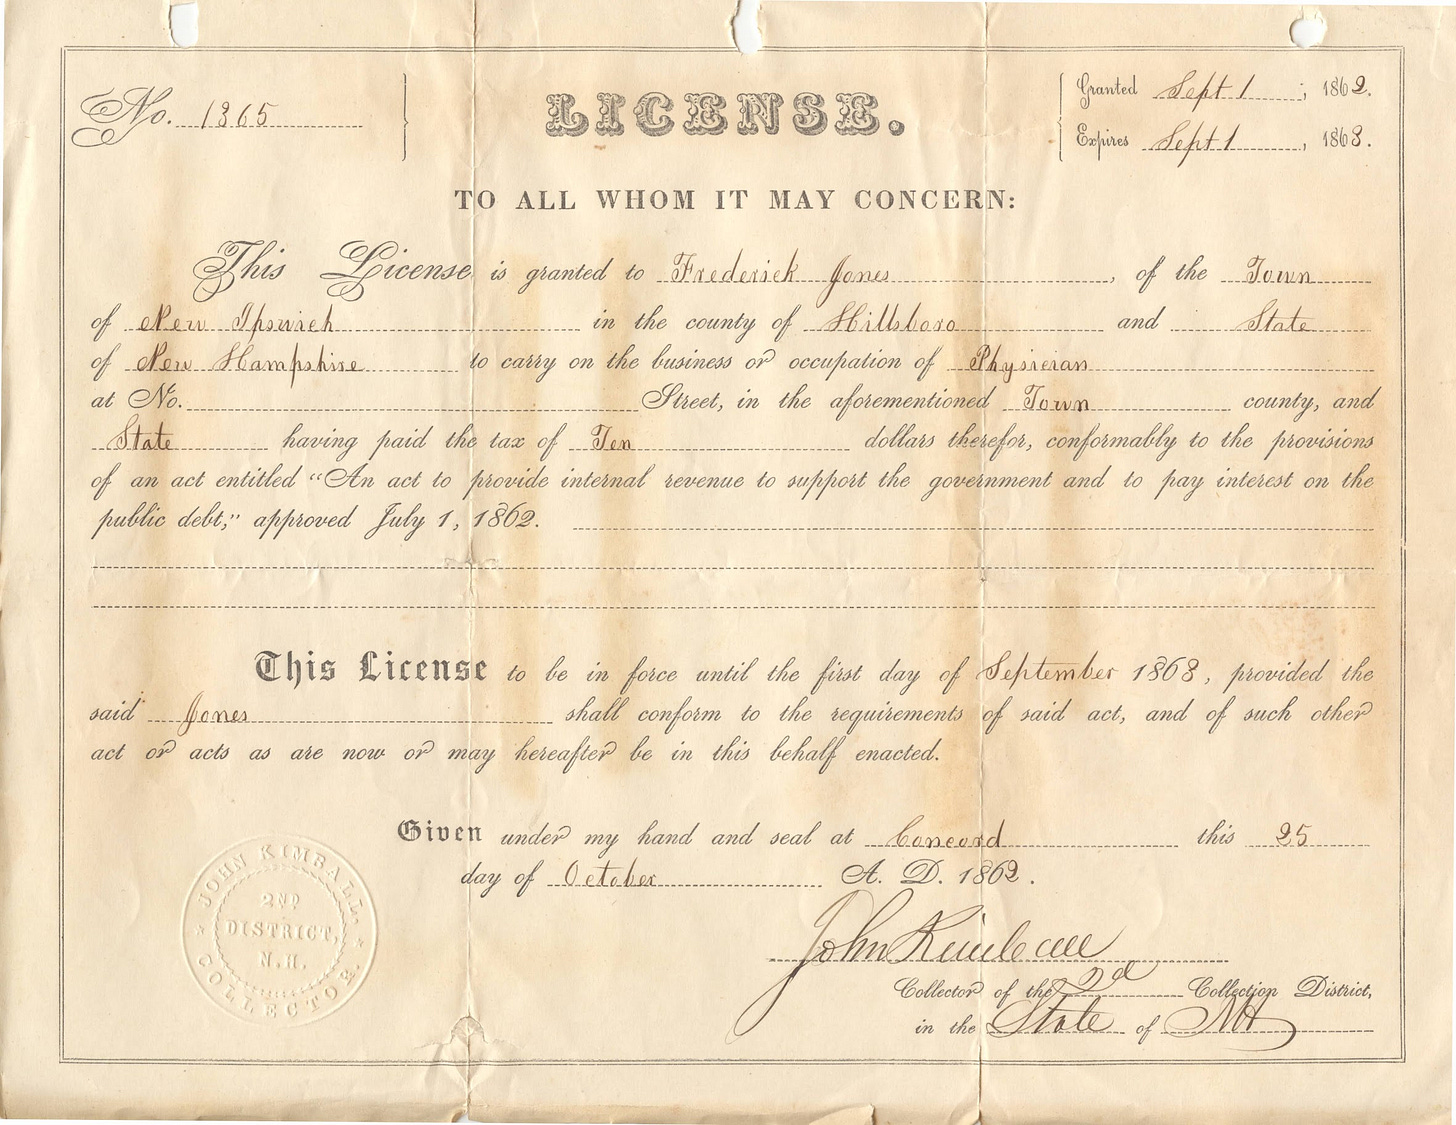 No. 1365
LICENSE.
Granted Sept 1, 1862.
Expires Sept 1, 1863.
TO ALL WHOM IT MAY CONCERN:
This License is granted to Frederick Jones, of the Town
of New Ipswich in the county of Hillsboro and State
of New Hampshire to carry on the business or occupation of Physician
at No. Street, in the aforementioned Town county, and
State having paid the tax of Ten dollars therefor, conformably to the provisions
of an act entitled "An act to provide internal revenue to support the government and to pay interest on the
public debt," approved July 1, 1862.
This License to be in force until the first day of September 1863, provided the
said Jones shall conform to the requirements of said act, and of such other
act or acts as are now or may hereafter be in this behalf enacted.
Given under my hand and seal at Concord this 25
day of October A. D. 1862.
John Kimball
Collector of the 2d Collection District,
in the State of NH
JOHN KIMBALL,
2ND
DISTRICT,
N.H.
COLLECTOR